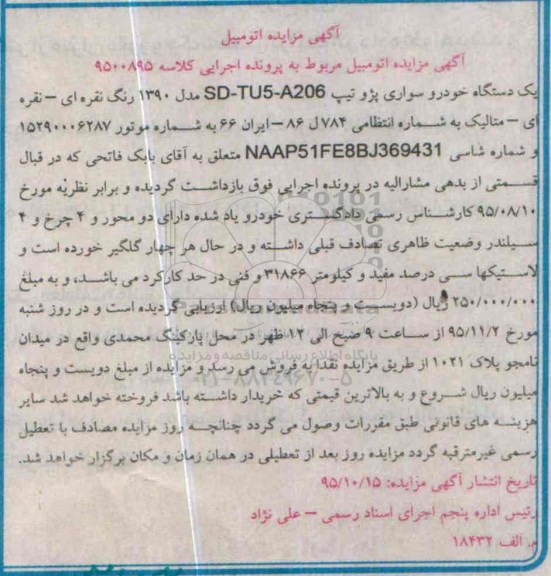 آگهی مزایده اتومبیل
آگهی مزایده اتومبیل مربوط به پرونده اجرایی کلاسه ۹۵۰۰۸۹۵
یک دستگاه خودرو سواری پژو تیپ SD-TU5-A206 مدل ۱۳۹۰ رنگ نقره ای – نقره
ای – متالیک به شماره انتظامی ۷۸۴ ل ۸۶ – ایران ۶۶ به شماره موتور ۱۵۲۹۰۰۰۶۲۸۷
و شماره شاسی NAAP51FE8BJ369431 متعلق به آقای بابک فاتحی که در قبال
قسمتی از بدهی مشارالیه در پرونده اجرایی فوق بازداشت گردیده و برابر نظریه مورخ
۹۵/۰۸/۱۰ کارشناس رسمی دادگستری خودرو یاد شده دارای دو محور و ۴ چرخ و ۴
سیلندر وضعیت ظاهری تصادف قبلی داشته و در حال هر چهار گلگیر خورده است و
لاستیکها سی درصد مفید و کیلومتر ۳۱۸۶۶ و فنی در حد کارکرد می باشد، و به مبلغ
۲۵۰/۰۰۰/۰۰۰ ریال (دویست و پنجاه میلیون ریال) ارزیابی گردیده است و در روز شنبه
مورخ ۹۵/۱۱/۲ از ساعت ۹ صبح الی ۱۲ ظهر در محل پارکینگ محمدی واقع در میدان
نامجو پلاک ۱۰۲۱ از طریق مزایده نقدا به فروش می رسد و مزایده از مبلغ دویست و پنجاه
میلیون ریال شروع و به بالاترین قیمتی که خریدار داشته باشد فروخته خواهد شد سایر
هزینه های قانونی طبق مقررات وصول می گردد چنانچه روز مزایده مصادف با تعطیل
رسمی غیرمترقبه گردد مزایده روز بعد از تعطیلی در همان زمان و مکان برگزار خواهد شد.
تاریخ انتشار آگهی مزایده: ۹۵/۱۰/۱۵
رئیس اداره پنجم اجرای اسناد رسمی – علی نژاد
م. الف ۱۸۴۳۲